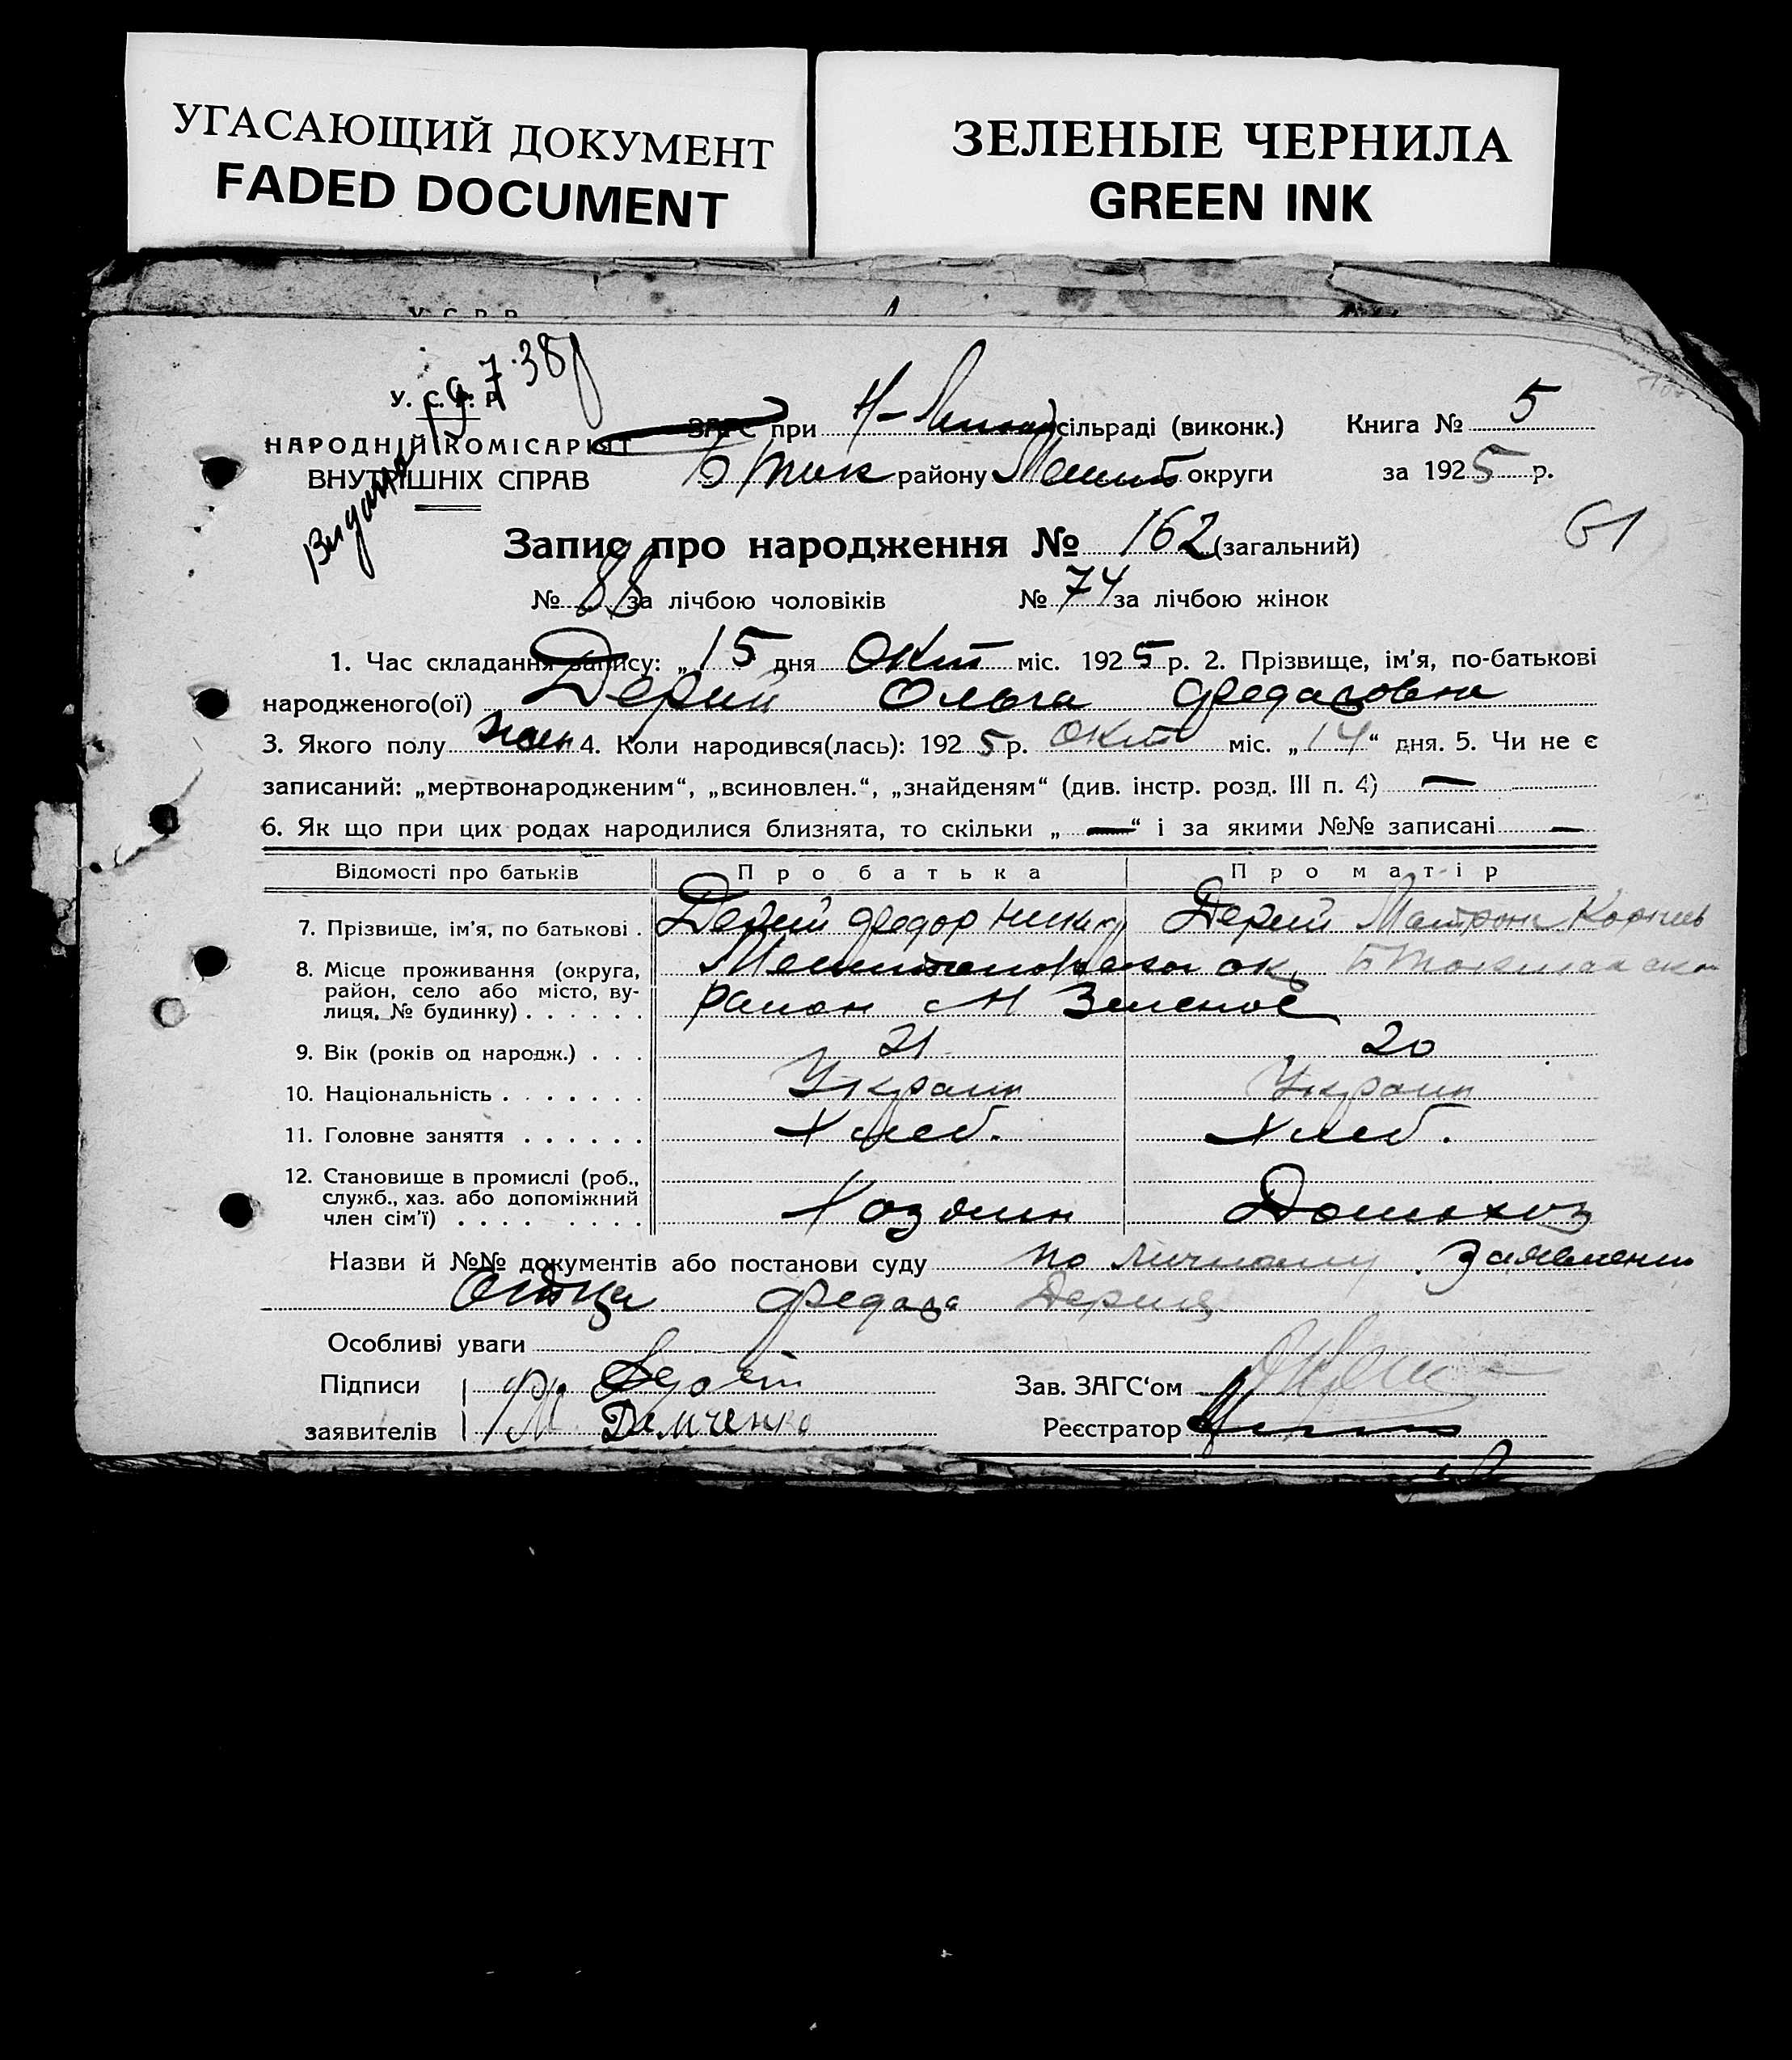 УГАСАЮЩИЙ ДОКУМЕНТ
FADED DOCUMENT
ЗЕЛЕНЫЕ ЧЕРНИЛА
GREEN INK
У. С. Р. Р.
НАРОДНІЙ КОМІСАРІЯТ
ВНУТРІШНІХ СПРАВ
ЗАГС при сільраді (виконк.)
Б Ток району Мелит округи
Книга № 5
за 1925 р.
61
Запис про народження № 162 (загальний)
№ 88 за лічбою чоловіків № 74 за лічбою жінок
1. Час складання запису: „15 дня Окт міс. 1925 р. 2. Прізвище, ім'я, по-батькові
народженого(ої) Дерий Ольга Федоровна
3. Якого полу жен 4. Коли народився(лась): 1925 р. окт міс. „14“ дня. 5. Чи не є
записаний: „мертвонародженим“, „всиновлен.“, „знайденям“ (див. інстр. розд. III п. 4) —
6. Як що при цих родах народилися близнята, то скільки „—“ і за якими №№ записані —
Відомості про батьків Про батька Про матір
7. Прізвище, ім'я, по батькові . Дерий Федор Дерий Матрона Корнеев
8. Місце проживання (округа, Мелитопольская ок Б Токмакска
район, село або місто, ву- район с Н Зеленое
лиця, № будинку) . . . . . .
9. Вік (років од народж.) . . . 21 20
10. Національність . . . . . . . Украин Украин
11. Головне заняття . . . . . . Хлеб. Хлеб.
12. Становище в промислі (роб.,
служб., хаз. або допоміжний
член сім'ї) . . . . . . . . . Хозяин Домохоз
Назви й №№ документів або постанови суду по личному заявлению
Отца Федора Дерия
Особливі уваги
Підписи
заявителів М. Демченко
Зав. ЗАГС'ом
Реєстратор